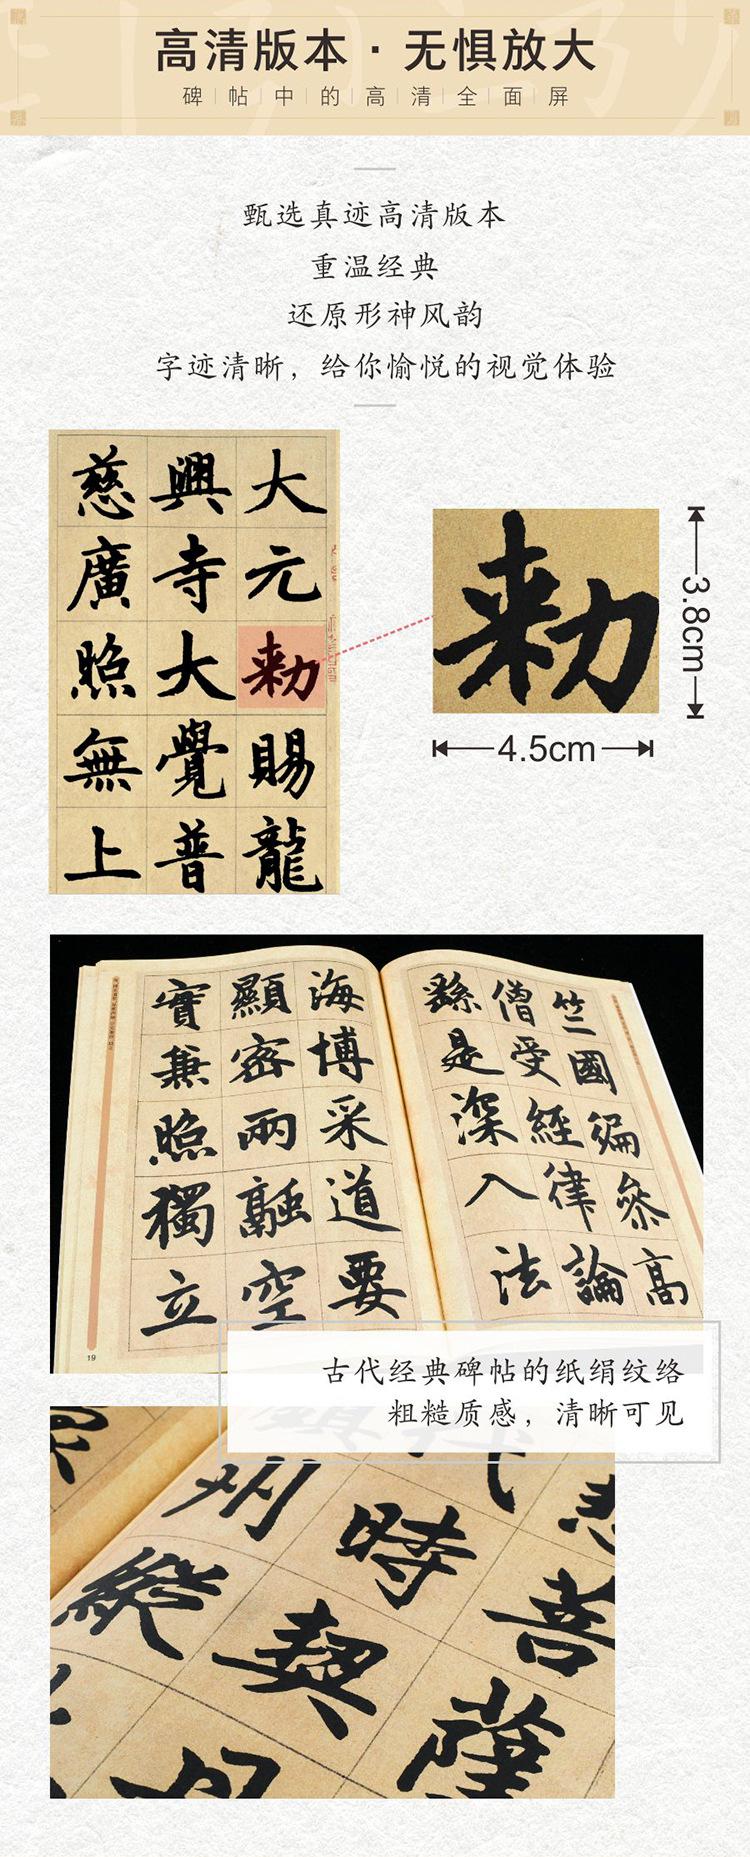 高清版本·无惧放大
碑帖中的高清全面屏
甄选真迹高清版本
重温经典
还原形神风韵
字迹清晰，给你愉悦的视觉体验
大元敕賜龍
興寺大覺普
慈廣照無上
敕
3.8cm
4.5cm
竺國編參高
僧受經律論
繇是深入法
海博采道要
顯密兩融空
實兼照獨立
19
古代经典碑帖的纸绢纹络
粗糙质感，清晰可见
悲菩薩
時契
州縱